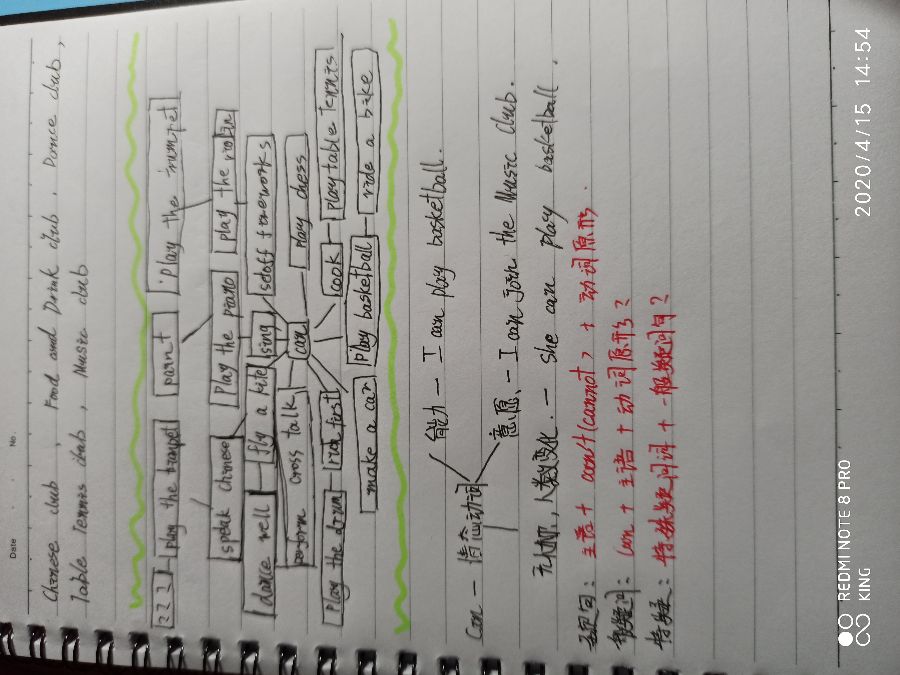 Date
No.
Chinese club, Food and Drink club, Dance club,
Table Tennis club, Music club
play the trumpet
paint
play the trumpet
speak Chinese
Play the piano
play the violin
dance well
fly a kite
sing
setoff fireworks
perform cross talk
can
play chess
play the drum
run first
cook
play table tennis
make a car
play basketball
ride a bike
Can — 情态动词
能力 — I can play basketball.
意愿 — I can join the Music club.
无时机,人数变化. — she can play basketball.
主语 + can't(cannot) + 动词原形
Can + 主语 + 动词原形?
特殊疑问词 + 一般疑问句?
REDMI NOTE 8 PRO
KING
2020/4/15 14:54